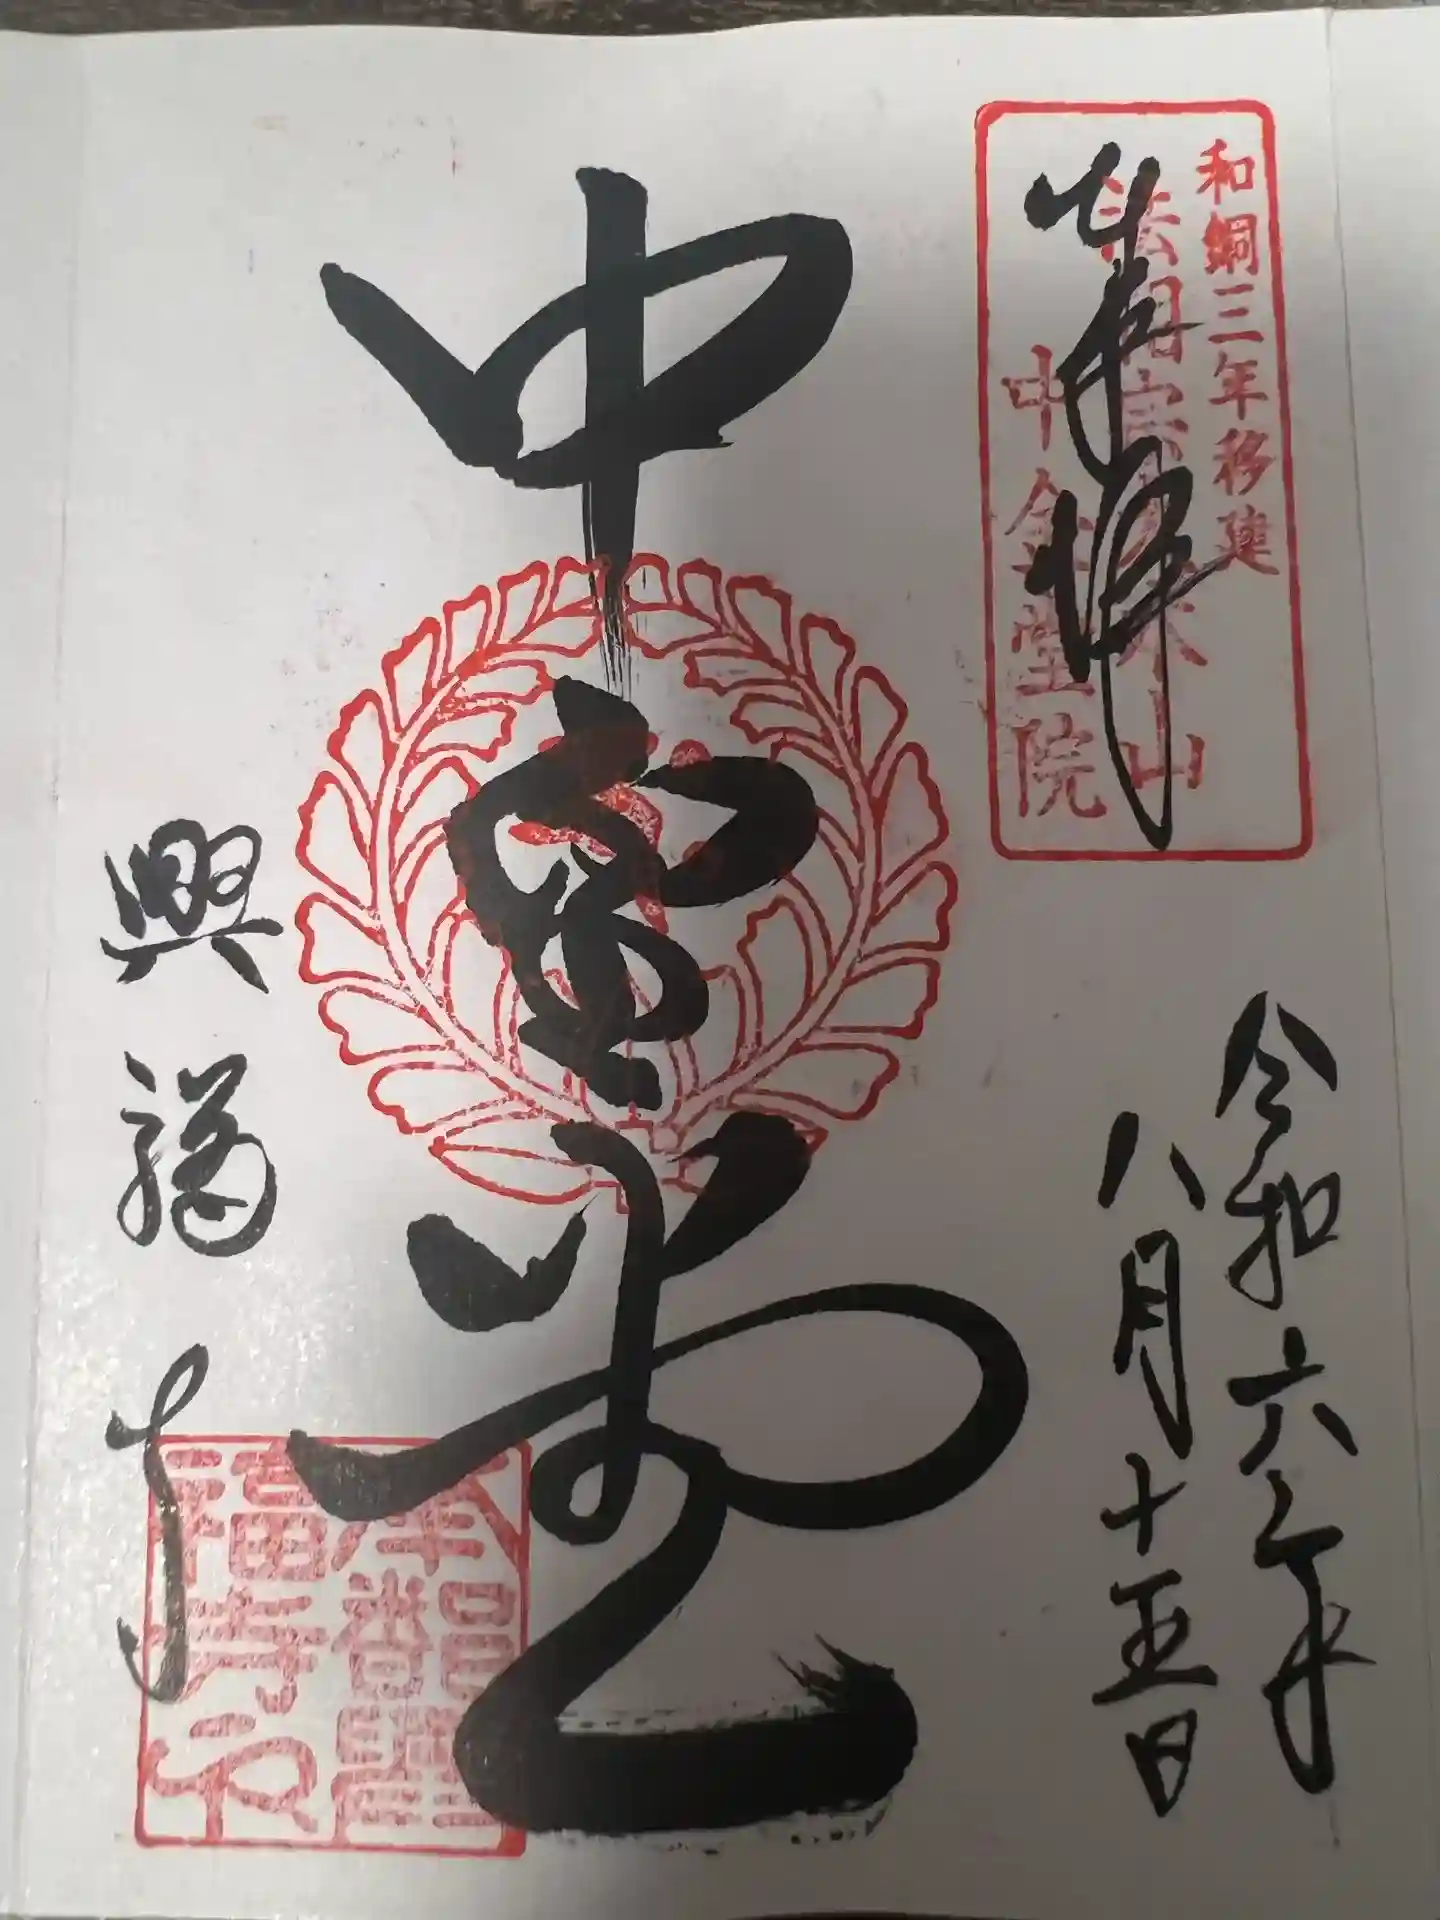 和銅三年移建
法相宗大本山
中金堂院
奉拝
令和六年
八月十五日
中金堂
興福寺